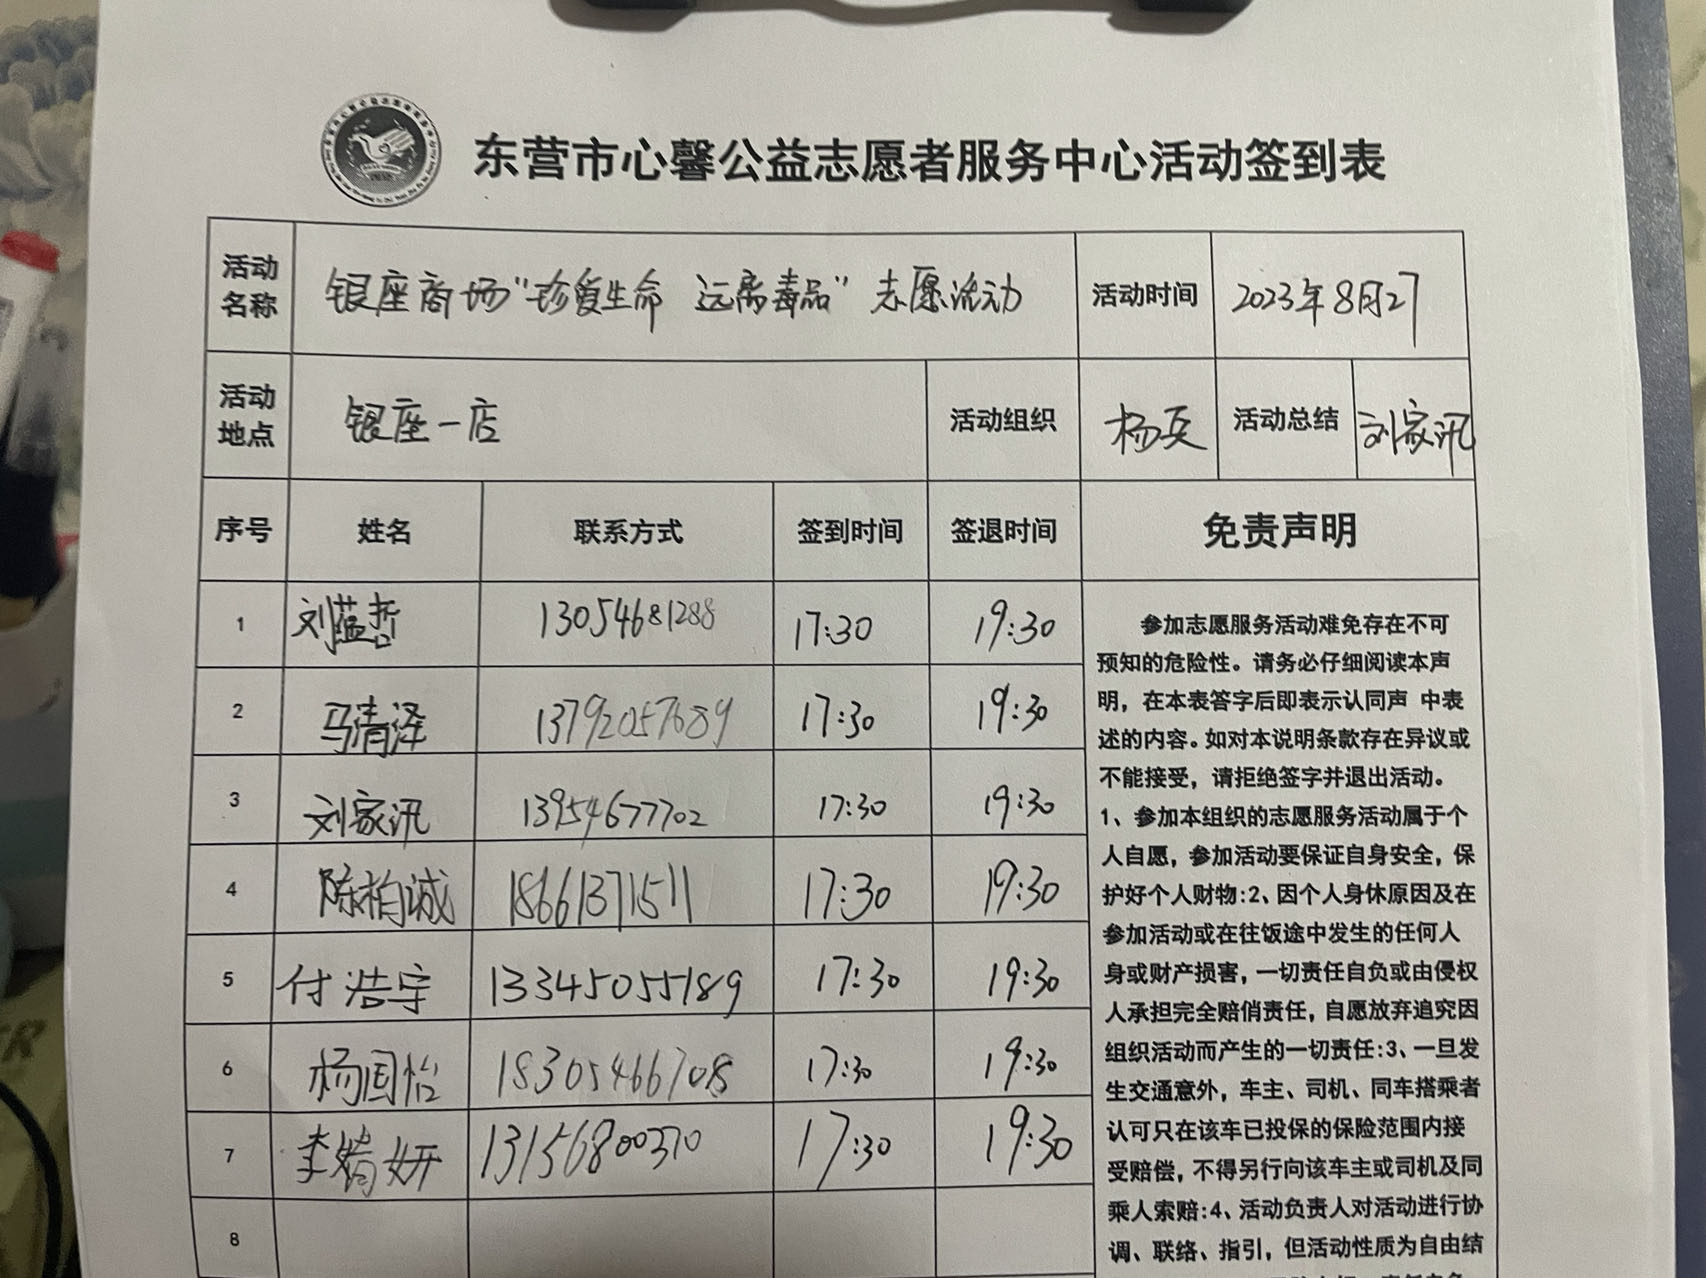 东营市心馨公益志愿者服务中心活动签到表
活动名称 银座商场“珍爱生命 远离毒品”志愿活动 活动时间 2023年8月27
活动地点 银座一店 活动组织 杨兵 活动总结 刘家讯
序号 姓名 联系方式 签到时间 签退时间 免责声明
1 刘蕴哲 13054681288 17:30 19:30
2 马清泽 13792057689 17:30 19:30
3 刘家讯 13954677702 17:30 19:30
4 陈柏诚 18661371511 17:30 19:30
5 付浩宇 13345055189 17:30 19:30
6 杨国怡 18305466708 17:30 19:30
7 李婧妍 13156800370 17:30 19:30
8
参加志愿服务活动难免存在不可
预知的危险性。请务必仔细阅读本声
明，在本表答字后即表示认同声 中表
述的内容。如对本说明条款存在异议或
不能接受，请拒绝签字并退出活动。
1、参加本组织的志愿服务活动属于个
人自愿，参加活动要保证自身安全，保
护好个人财物:2、因个人身休原因及在
参加活动或在往饭途中发生的任何人
身或财产损害，一切责任自负或由侵权
人承担完全赔俏责任，自愿放弃追究因
组织活动而产生的一切责任:3、一旦发
生交通意外，车主、司机、同车搭乘者
认可只在该车已投保的保险范围内接
受赔偿，不得另行向该车主或司机及同
乘人索赔:4、活动负责人对活动进行协
调、联络、指引，但活动性质为自由结